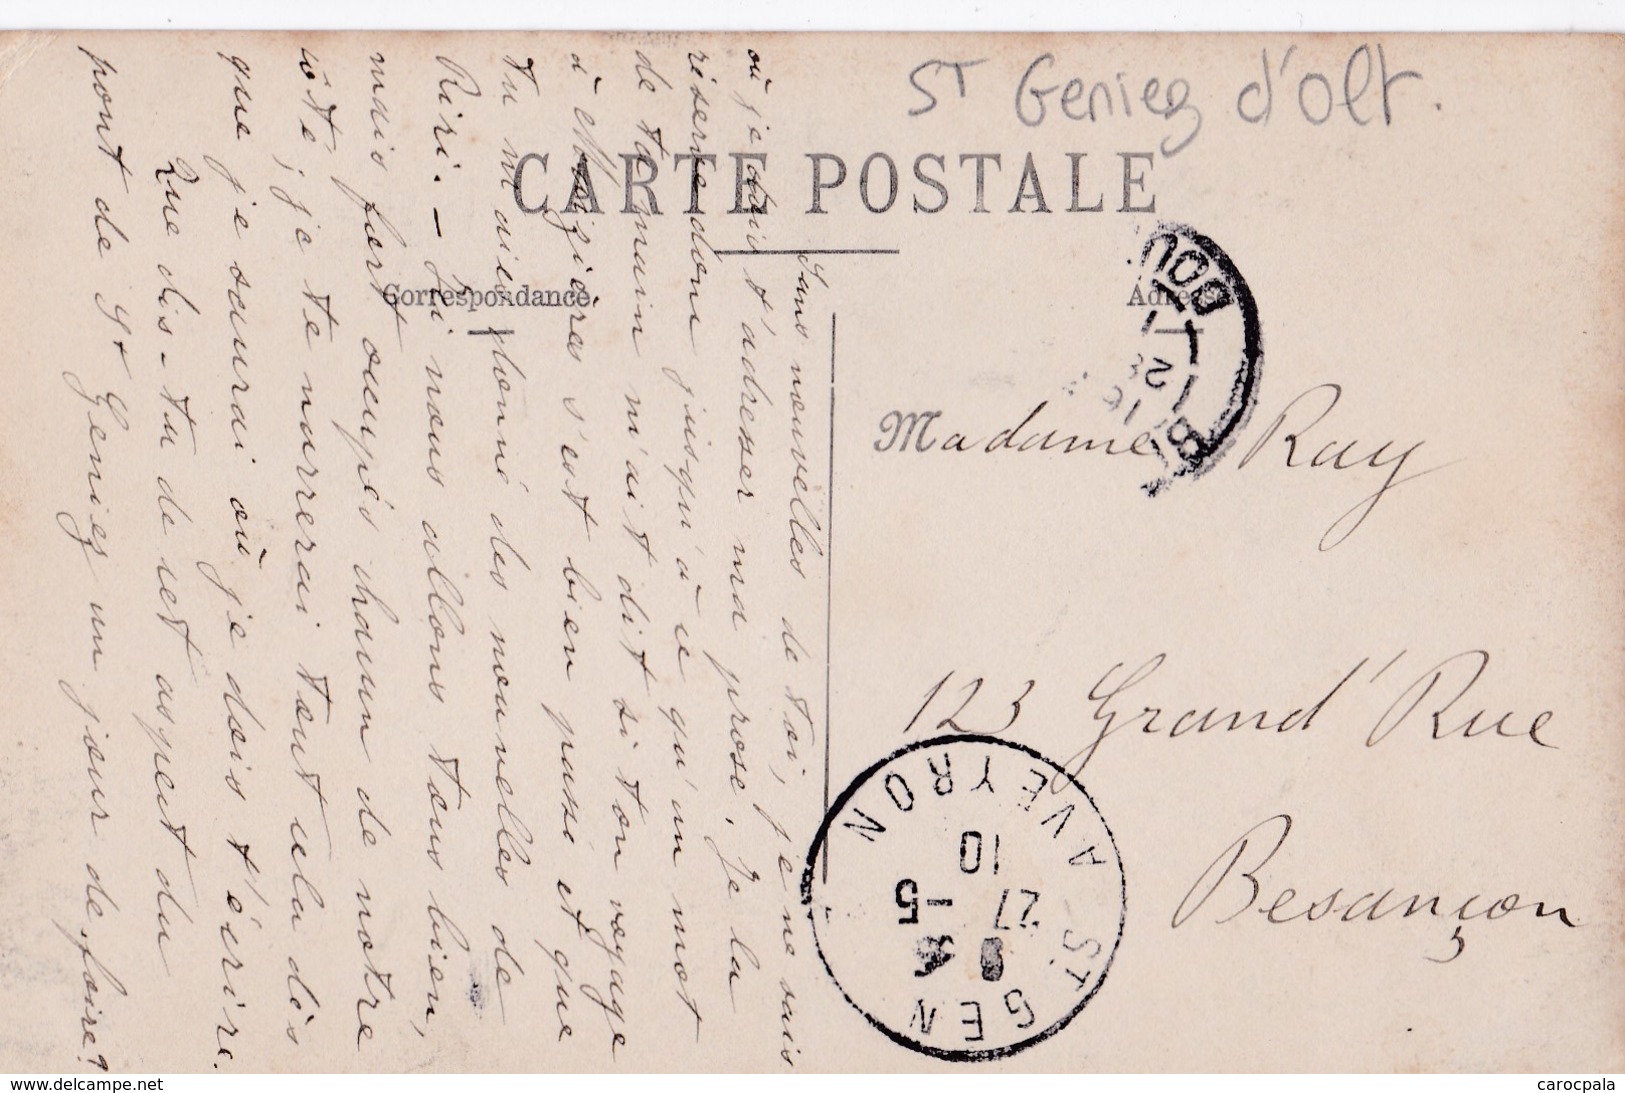 St Geniez d'Olt.
CARTE POSTALE
Correspondance
Adresse
Sans nouvelles de toi, je ne sais
où je dois t'adresser ma prose. Je la
réserve donc jusqu'à ce qu'un mot
de ta main m'ait dit si ton voyage
à Mézières s'est bien passé et que
tu m'aies donné des nouvelles de
Riri. — Ici nous allons tous bien,
mais fort occupés chacun de notre
côté ; je te narrerai tout cela dès
que je saurai où je dois t'écrire.
Que dis-tu de cet aspect du
pont de St Geniez un jour de foire?
Madame Ray
123 Grand'Rue
Besançon
ST GEN
AVEYRON
27 -5
10
DOU
B
www.delcampe.net
carocpala